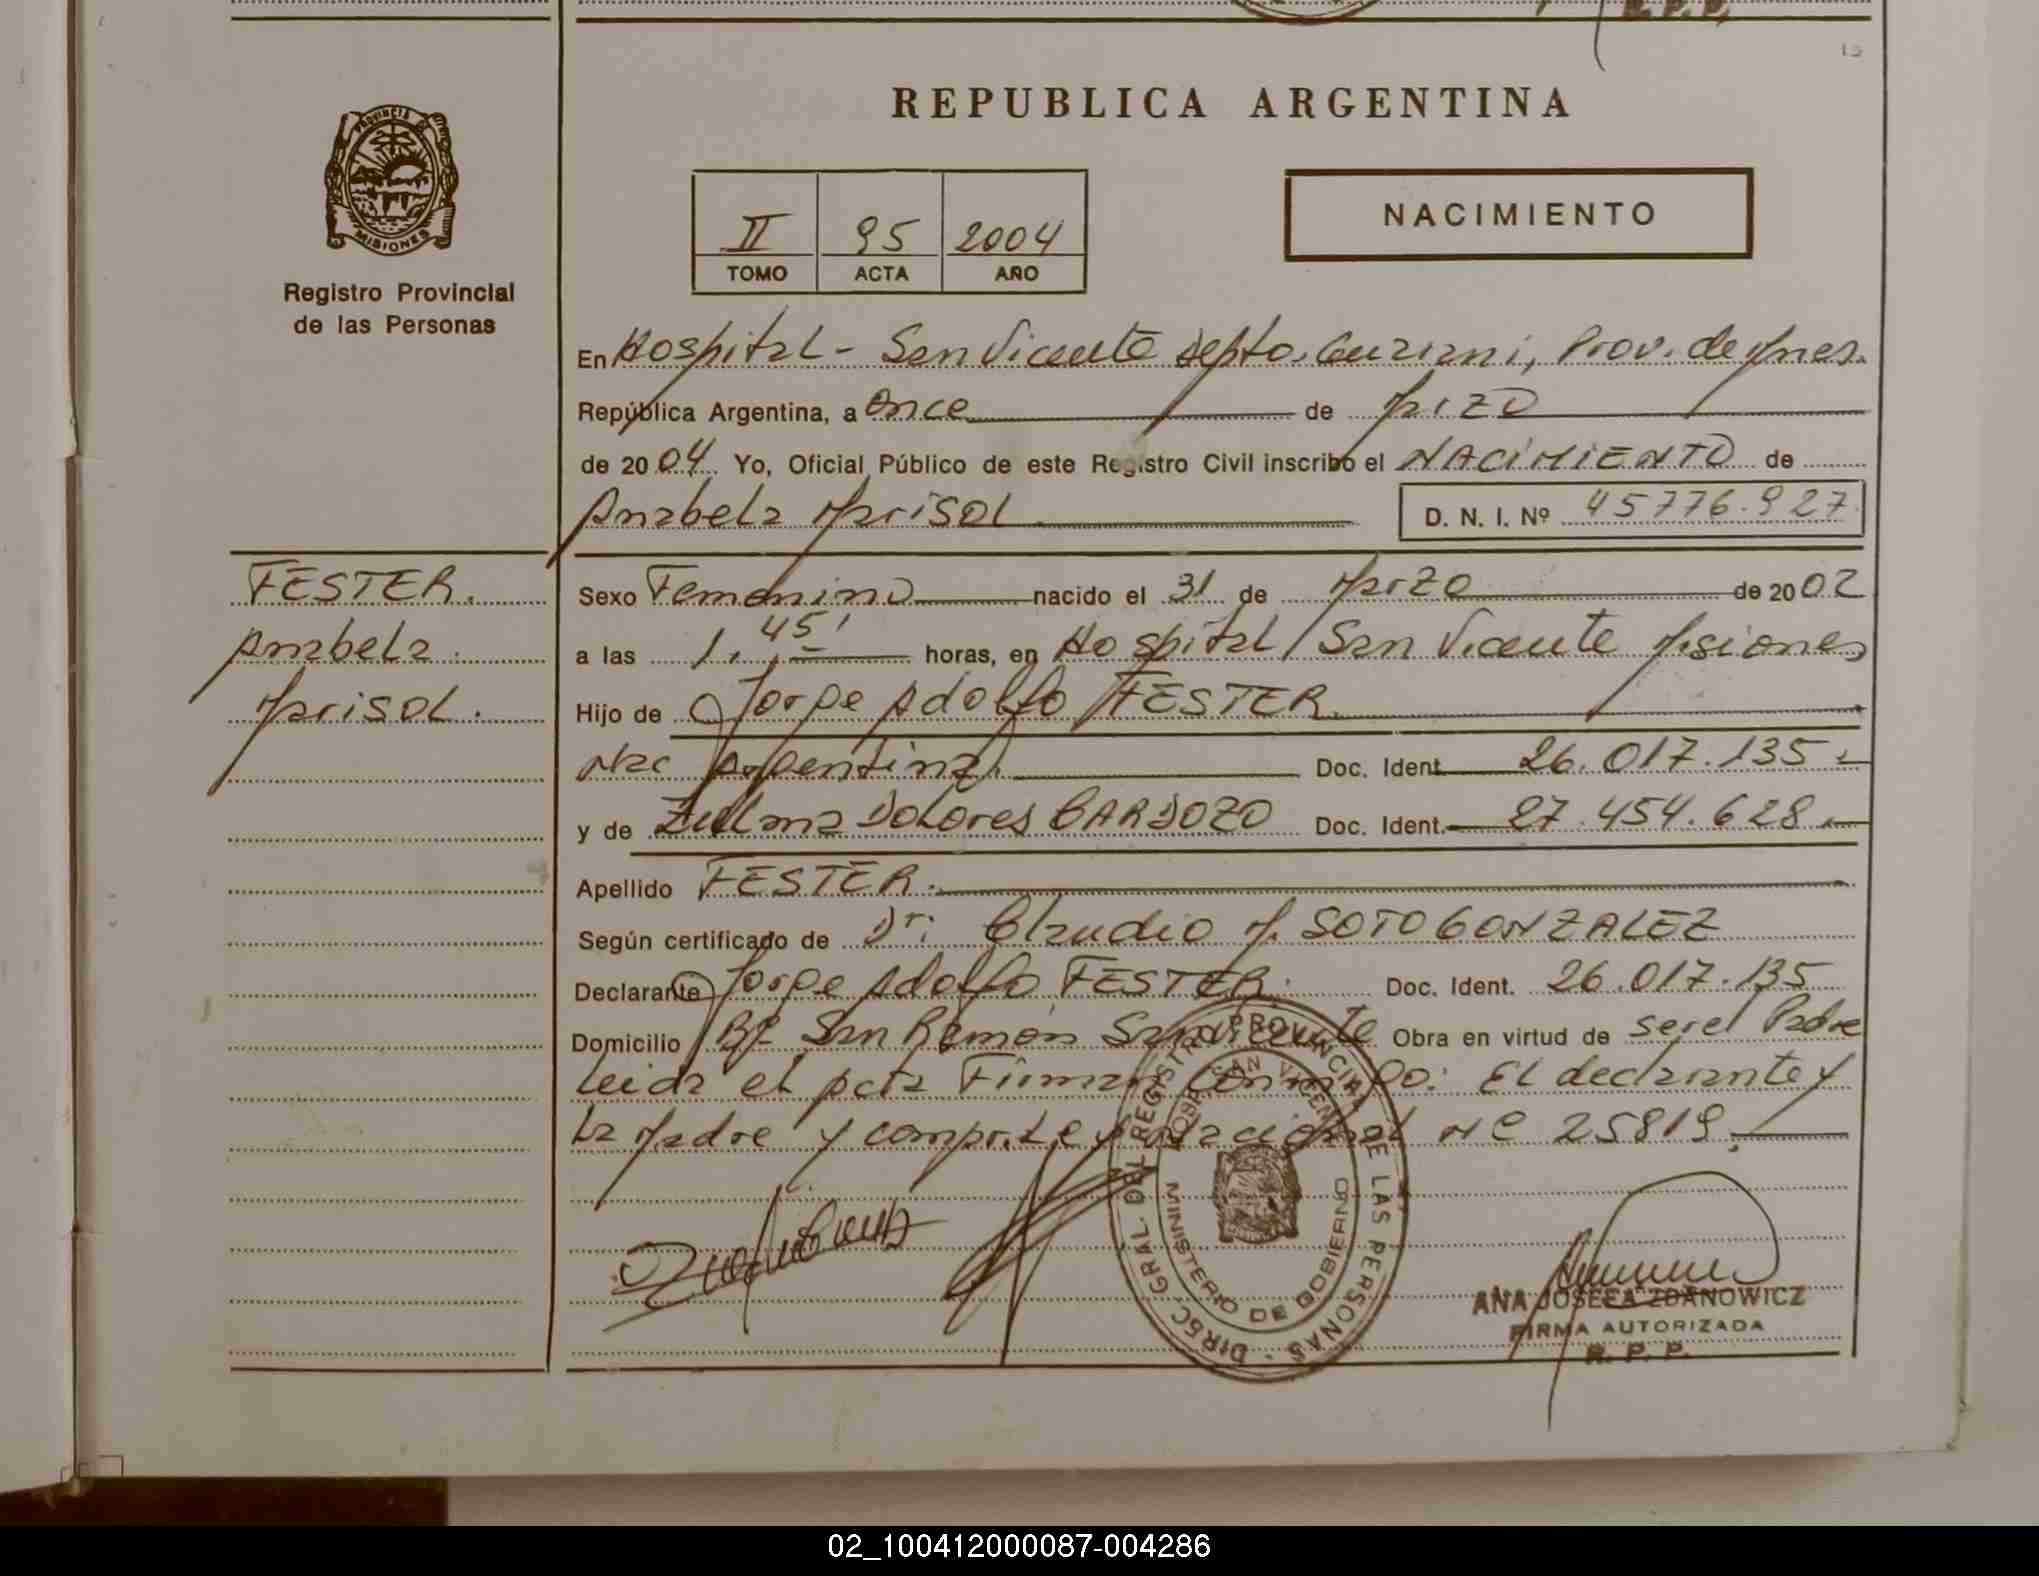 15
REPUBLICA ARGENTINA
PROVINCIA DE
MISIONES
Registro Provincial
de las Personas
II 95 2004
TOMO ACTA AÑO
NACIMIENTO
En Hospital - San Vicente Depto. Guaraní, Prov. de Mnes.
República Argentina, a once de Marzo
de 2004 Yo, Oficial Público de este Registro Civil inscribo el NACIMIENTO de
Anabela Marisol D. N. I. Nº 45776.927
FESTER.
Anabela
Marisol.
Sexo Femenino nacido el 31 de Marzo de 2002
a las 1,45' horas, en Hospital San Vicente Misiones
Hijo de Jorge Adolfo FESTER
Nac Argentina. Doc. Ident. 26.017.135
y de Zulma Dolores CARDOZO Doc. Ident. 27.454.628
Apellido FESTER.
Según certificado de Dr: Claudio M. SOTO GONZALEZ
Declarante Jorge Adolfo FESTER. Doc. Ident. 26.017.135
Domicilio Bº San Ramón San Vicente Obra en virtud de ser el Padre
Leida el Acta Firman conmigo: El declarante y
La Madre y comp. Ley Nacional Nº 25819.
DIREC. GRAL. DEL REGISTRO PROVINCIAL DE LAS PERSONAS
HOSP. SAN VICENTE
MINISTERIO DE GOBIERNO
ANA JOSEFA ZDANOWICZ
FIRMA AUTORIZADA
R. P. P.
02_100412000087-004286